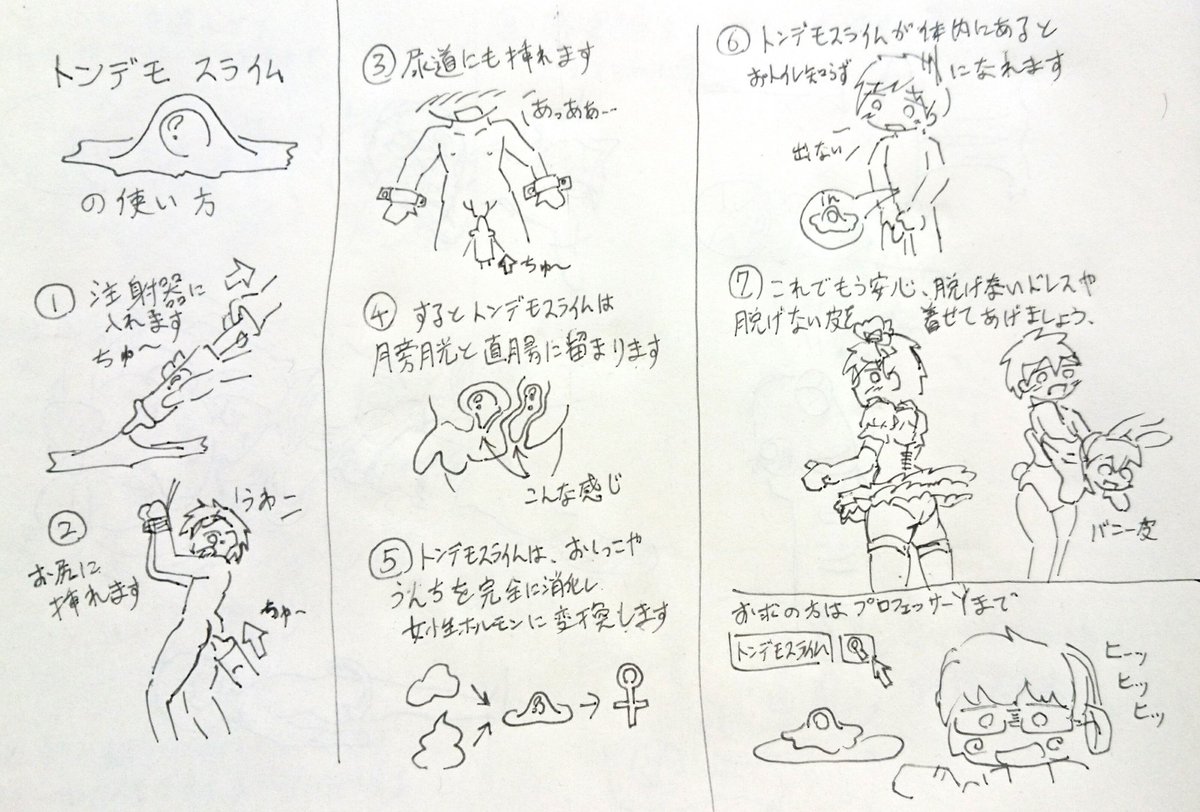 トンデモ スライム
?
の使い方
① 注射器に
入れます
ちゅ〜
② お尻に
挿れます
うわー
ちゅ〜
③ 尿道にも挿れます
あっああー…
ちゅ〜
④ するとトンデモスライムは
膀胱と直腸に留まります
こんな感じ
⑤ トンデモスライムは、おしっこや
うんちを完全に消化し
女性ホルモンに変換します
⑥ トンデモスライムが体内にあると
おトイレ知らずになれます
出ない
in
⑦ これでもう安心、脱げないドレスや
脱げない皮を着せてあげましょう、
バニー皮
お求の方はプロフェッサーYまで
トンデモスライム
ヒーッ
ヒッ
ヒッ